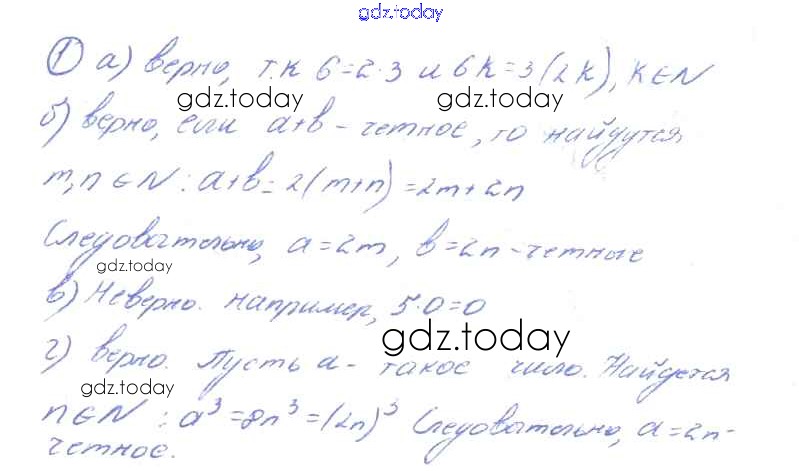 gdz.today
1 а) верно, т.к 6=2·3 и 6k=3(2k), k∈N
gdz.today gdz.today
б) верно, если a+b - четное, то найдутся
m,n∈N : a+b=2(m+n)=2m+2n
Следовательно, a=2m, b=2n - четные
gdz.today
в) Неверно. например, 5·0=0
gdz.today
г) верно. Пусть a - такое число. Найдется
gdz.today
n∈N : a³=8n³=(2n)³ Следовательно, a=2n-
четное.